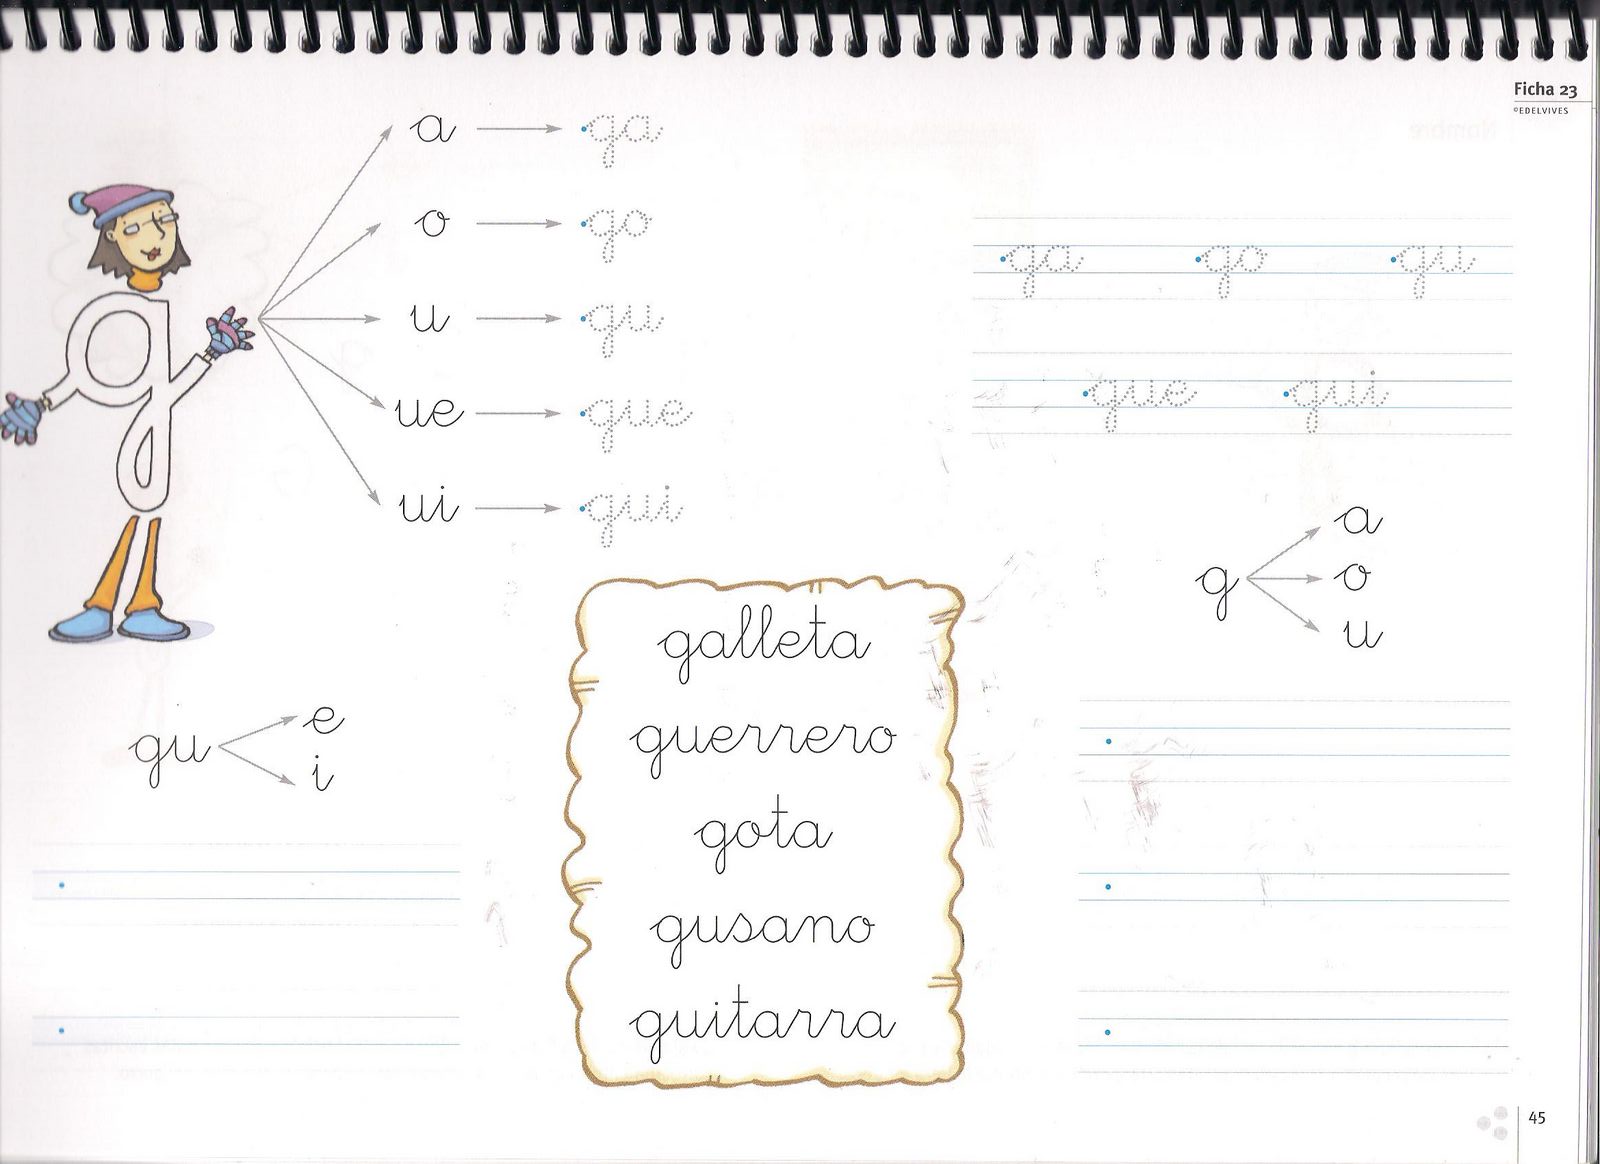 Ficha 23
©EDELVIVES
a ga
o go
u gu
ue gue
ui gui
ga go gu
gue gui
g
a
o
u
g
gu
e
i
galleta
guerrero
gota
gusano
guitarra
45